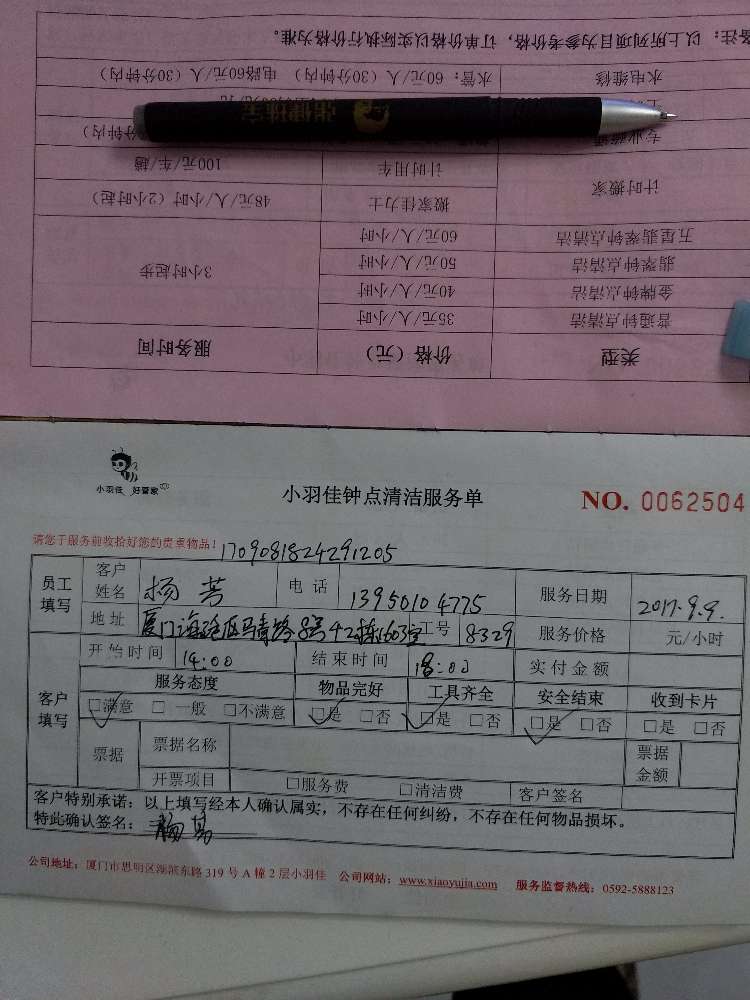 备注：以上所列项目为参考价格，订单价格以实际执行价格为准。
水电维修 水管：60元/人（30分钟内） 电路60元/人（30分钟内）
计时搬家 搬家佳力士 48元/人/小时（2小时起）
计时用车 100元/车/趟
五星翡翠钟点清洁 60元/人/小时
翡翠钟点清洁 50元/人/小时
金牌钟点清洁 40元/人/小时
普通钟点清洁 35元/人/小时
3小时起步
类型 价格（元） 服务时间
小羽佳 好管家
小羽佳钟点清洁服务单
NO. 0062504
请您于服务前收拾好您的贵重物品！
1709081824291205
员工填写 客户姓名 杨芳 电话 13950104775 服务日期 2017.9.9.
地址 厦门海沧区马青路8号42栋1603室 工号 8329 服务价格 元/小时
客户填写 开始时间 14:00 结束时间 18:00 实付金额
服务态度 物品完好 工具齐全 安全结束 收到卡片
□满意 □一般 □不满意 □是 □否 □是 □否 □是 □否 □是 □否
票据 票据名称 票据金额
开票项目 □服务费 □清洁费 客户签名
客户特别承诺：以上填写经本人确认属实，不存在任何纠纷，不存在任何物品损坏。
特此确认签名：
公司地址：厦门市思明区湖滨东路319号A幢2层小羽佳 公司网站：www.xiaoyujia.com 服务监督热线：0592-5888123